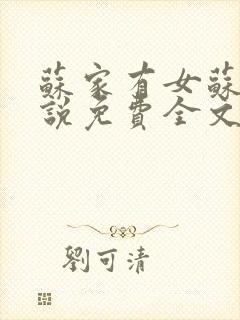 蘇家有女蘇
說免費全文
劉可清